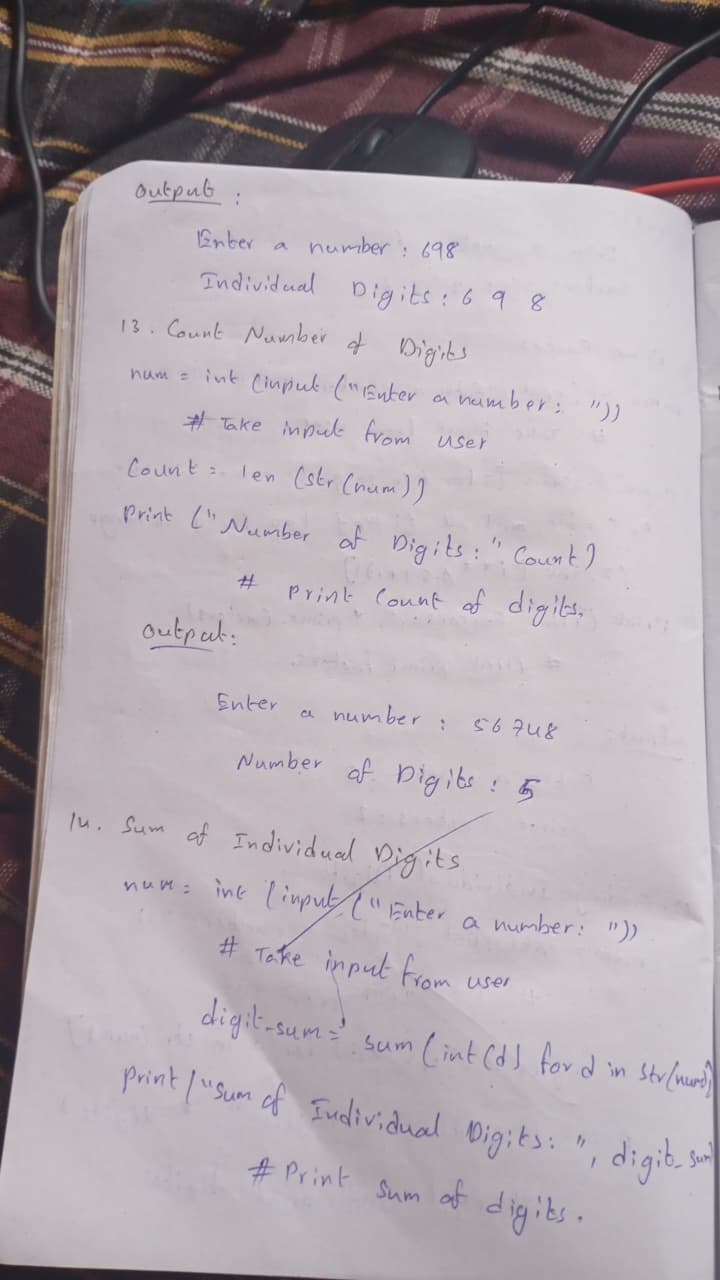 Output :
Enter a number : 698
Individual Digits : 6 9 8
13. Count Number of Digits
num = int (input ("Enter a number: "))
# Take input from user
Count = len (str(num))
Print ("Number of Digits:" Count)
# Print Count of digits.
Output:
Enter a number : 56748
Number of Digits : 5
14. Sum of Individual Digits
num = int (input ("Enter a number: "))
# Take input from user
digit-sum = sum (int(d) for d in str(num))
Print ("Sum of Individual Digits: ", digit_sum)
# Print sum of digits.